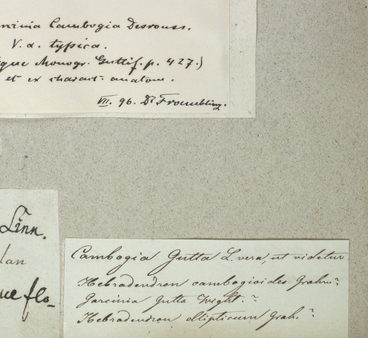 Cambogia Desrouss.
V. α. typica.
Monogr. Guttif. p. 427.)
et ex charact. anatom.
VII. 96. Dr Froembling.
Linn.
flo-
Cambogia Gutta L. vera, ut videtur
Hebradendron cambogioides Grah:
Garcinia Gutta Wight.
Hebradendron ellipticum Grah.